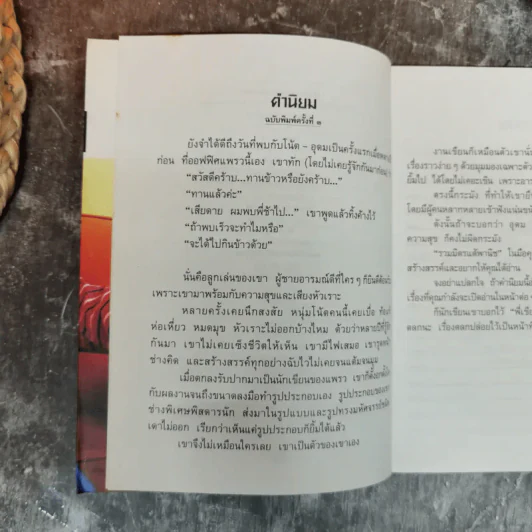 คำนิยม
ฉบับพิมพ์ครั้งที่ ๑
ยังจำได้ดีถึงวันที่พบกับโน้ต - อุดมเป็นครั้งแรกเมื่อ
ก่อน ที่ออฟฟิศแพรวนี้เอง เขาทัก (โดยไม่เคยรู้จักกันมาก่อน)
“สวัสดีคร้าบ...ทานข้าวหรือยังคร้าบ...”
“ทานแล้วค่ะ”
“เสียดาย ผมพบพี่ช้าไป...” เขาพูดแล้วทิ้งค้างไว้
“ถ้าพบเร็วจะทำไมหรือ”
“จะได้ไปกินข้าวด้วย”
นั่นคือลูกเล่นของเขา ผู้ชายอารมณ์ดีที่ใคร ๆ ก็ยินดีต้อนรับ
เพราะเขามาพร้อมกับความสุขและเสียงหัวเราะ
หลายครั้งเคยนึกสงสัย หนุ่มโน้ตคนนี้เคยเบื่อ ท้อแท้
ห่อเหี่ยว หมดมุข หัวเราะไม่ออกบ้างไหม ด้วยว่าหลายปีที่รู้จัก
กันมา เขาไม่เคยเซ็งชีวิตให้เห็น เขามีไฟเสมอ เขา
ช่างคิด และสร้างสรรค์ทุกอย่างฉับไวไม่เคยจนแต้มจนมุม
เมื่อตกลงรับปากมาเป็นนักเขียนของแพรว เขาก็
กับผลงานจนถึงขนาดลงมือทำรูปประกอบเอง รูปประกอบของเขา
ช่างพิเศษพิสดารนัก ส่งมาในรูปแบบและรูปทรงมหัศจรรย์
เดาไม่ออก เรียกว่าเห็นแค่รูปประกอบก็ยิ้มได้แล้ว
เขาจึงไม่เหมือนใครเลย เขาเป็นตัวของเขาเอง
งานเขียนก็เหมือนตัวเขานั่น
เรื่องราวง่าย ๆ ด้วยมุมมองเฉพาะตัว
ยิ้มไป ได้โดยไม่เคอะเขิน เพราะ
ตรงนี้กระมัง ที่ทำให้เขา
โดยมีผู้คนหลากหลายเข้าฟังแน่น
ดังนั้นถ้าจะบอกว่า อุดม
ความสุข ก็คงไม่ผิดกระมัง
“รวมมิตรแต้พานิช” ในมือคุณ
สร้างสรรค์และอยากให้คุณได้อ่าน
จงอย่าแปลกใจ ถ้าคำนิยมนี้
เรื่องที่คุณกำลังจะเปิดอ่านในหน้าต่อ
ก็นักเขียนเขาบอกไว้ “พี่เขียน
ตลกนะ เรื่องตลกปล่อยไว้เป็นหน้าที่